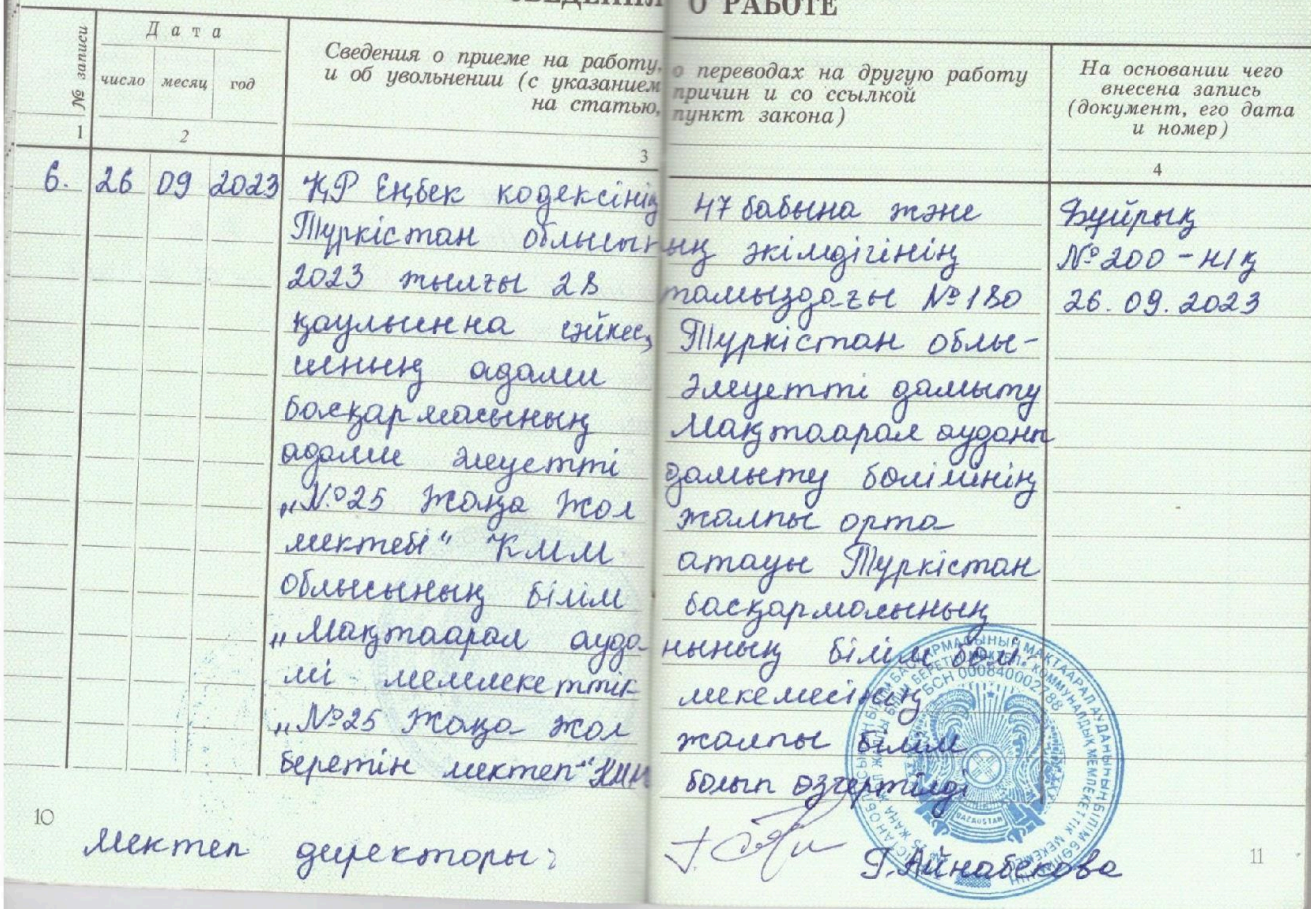 О РАБОТЕ
№ записи
Дата
число месяц год
Сведения о приеме на работу, о переводах на другую работу
и об увольнении (с указанием причин и со ссылкой
на статью, пункт закона)
На основании чего
внесена запись
(документ, его дата
и номер)
1 2 3 4
6. 26 09 2023 ҚР Еңбек кодексінің 47 бабына және Бұйрық
Түркістан облысының әкімдігінің № 200 - н/қ
2023 жылғы 28 тамыздағы № 180 26.09.2023
қаулысына сәйкес, Түркістан облы-
сының адами әлеуетті дамыту
басқармасының Мақтаарал ауданы
адами әлеуетті дамыту бөлімінің
"№25 Жаңа жол жалпы орта
мектебі" КММ атауы Түркістан
облысының білім басқармасының
"Мақтаарал ауданының білім бөлі
мі мемлекеттік мекемесінің
"№25 Жаңа жол жалпы білім
беретін мектеп" КММ болып өзгертілді
10
мектеп директоры: Г. Айнабекова
11
БСН 000840002788
QAZAQSTAN